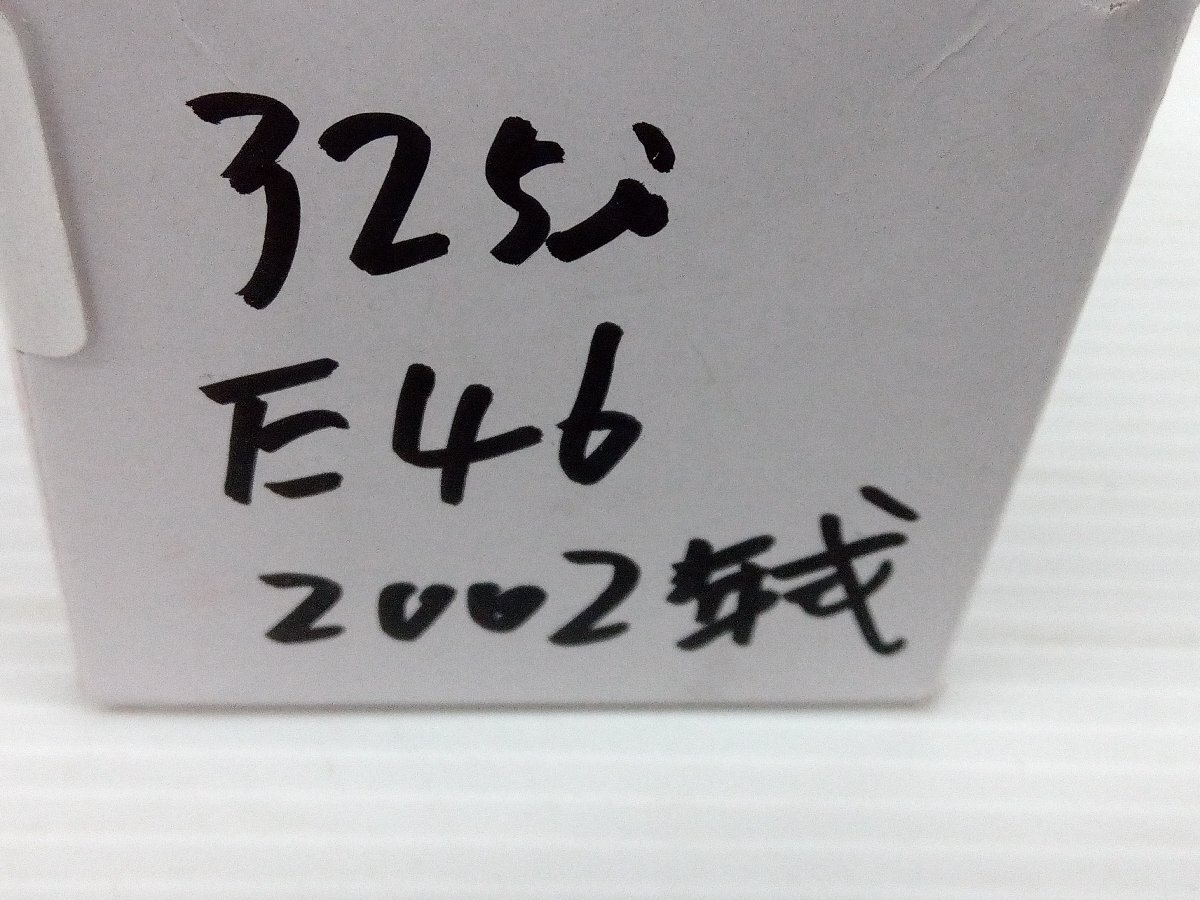 325i
E46
2002年式